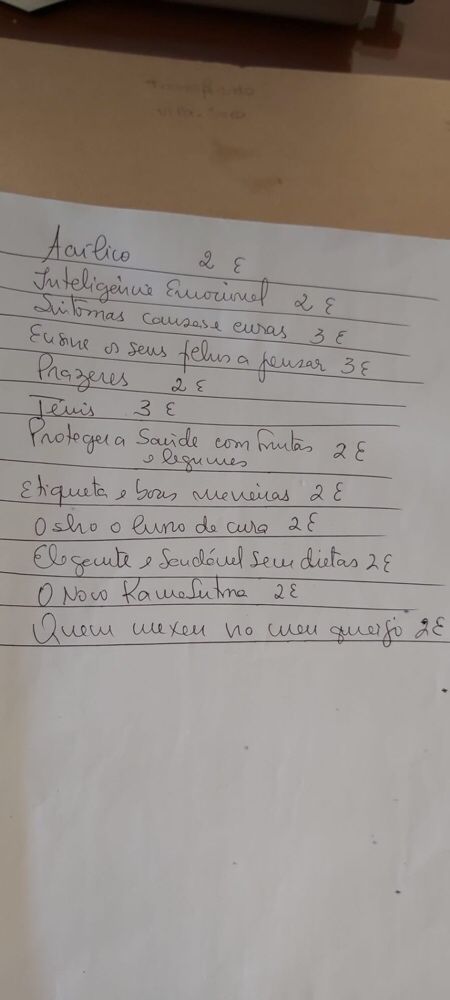 Acrílico 2 €
Inteligência Emocional 2 €
Sintomas causas e curas 3 €
Ensine os seus filhos a pensar 3 €
Prazeres 2 €
Ténis 3 €
Proteger a Saúde com frutas 2 €
e legumes
Etiqueta e boas maneiras 2 €
Osho o livro de cura 2 €
Elegante e Saudável sem dietas 2 €
O Novo KamaSutra 2 €
Quem mexeu no meu queijo 2 €